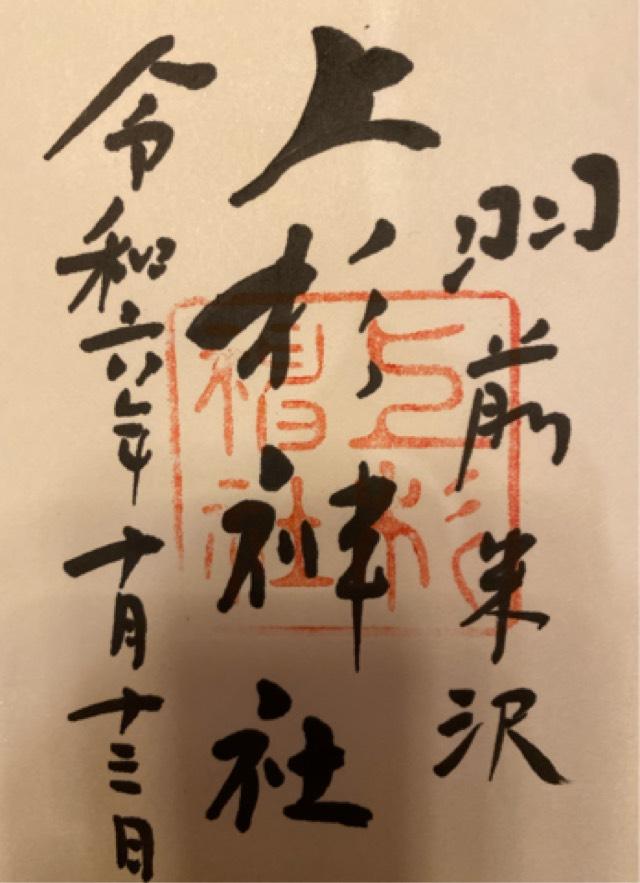 羽前米沢
上杉神社
令和六年十月十三日
上杉神社